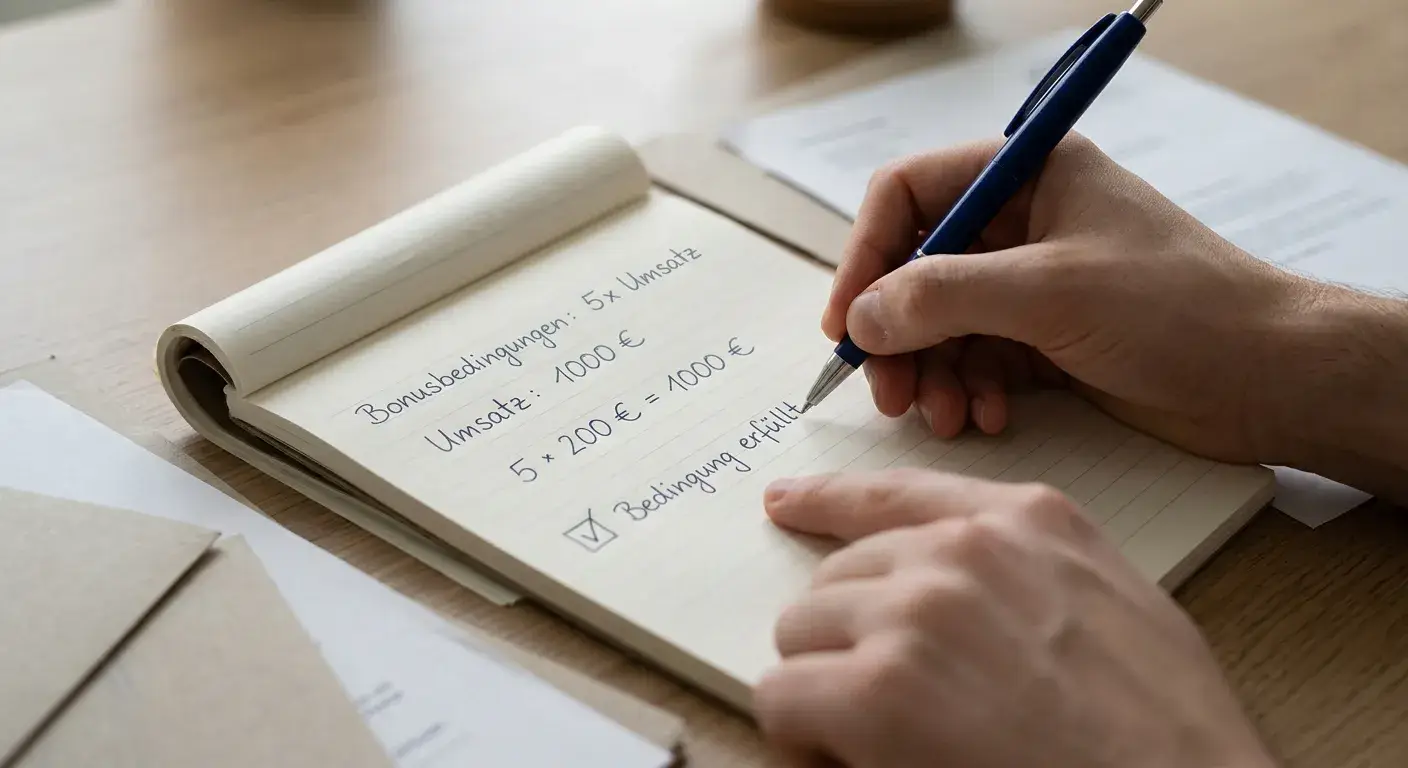 Bonusbedingungen: 5x Umsatz
Umsatz: 1000 €
5 × 200 € = 1000 €
☑ Bedingung erfüllt